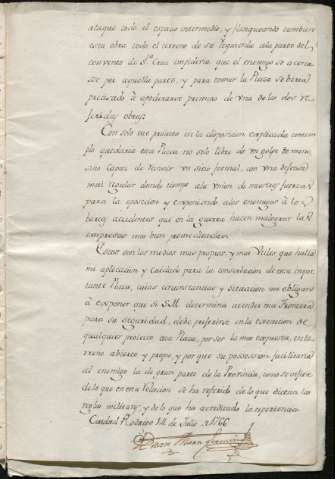 ataque todo el espacio intermedio, y flanqueando tambien
esta obra todo el terreno de su Izquierda a la parte del
convento de Sta. Cruz impediria que el enemigo se acerca
se por aquella parte, y para tomar la Plaza se veria
precisado à apoderarse primero de una de las dos re
feridas obras.
Con solo este proiecto en la disposicion explicada contem
plo quedaria esta Plaza no solo libre de un golpe de mano,
sino capaz de sufrir un sitio formal, con una defensa
mas regular dando tiempo a la union de nuestras fuerzas
para la oposicion y exponiendo a los enemigos à los
varios accidentes que en la guerra hacen malograr las
empresas mas bien premeditadas.
Estos son los medios mas propios, y mas utiles que halla
mi aplicacion y cuidado para la consolidacion de esta impor
tante Plaza, cuias circunstancias y situacion me obligaron
à exponer que si S.M. determina atender esta Frontera
para su seguridad, debe preferirse en la execucion de
qualquier proiecto esta Plaza, por ser la mas expuesta, en te
rreno abierto y propio, y por que su posesion facilitaria
al enemigo la de gran parte de la Provincia, como se infiere
de lo que en esta Relacion se ha referido de lo que dictan las
reglas militares, y de lo que ha acreditado la experiencia
Ciudad Rodrigo 14 de Julio de 1766
Juan Martin